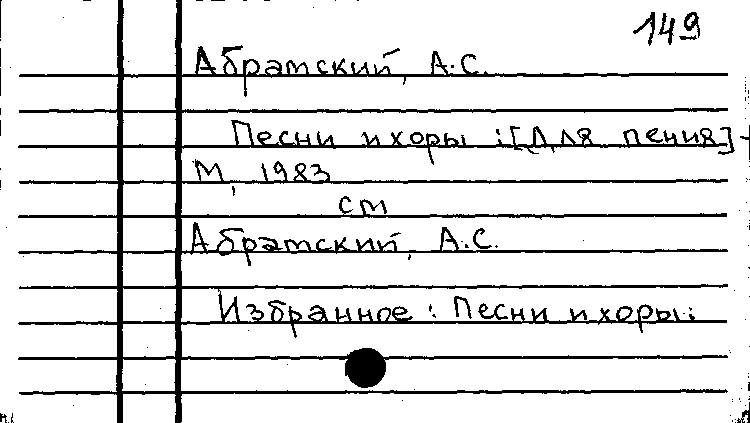 149
Абратский, А.С.
Песни и хоры :[Для пения]-
М, 1983
см
Абратский, А.С.
Избранное : Песни и хоры: